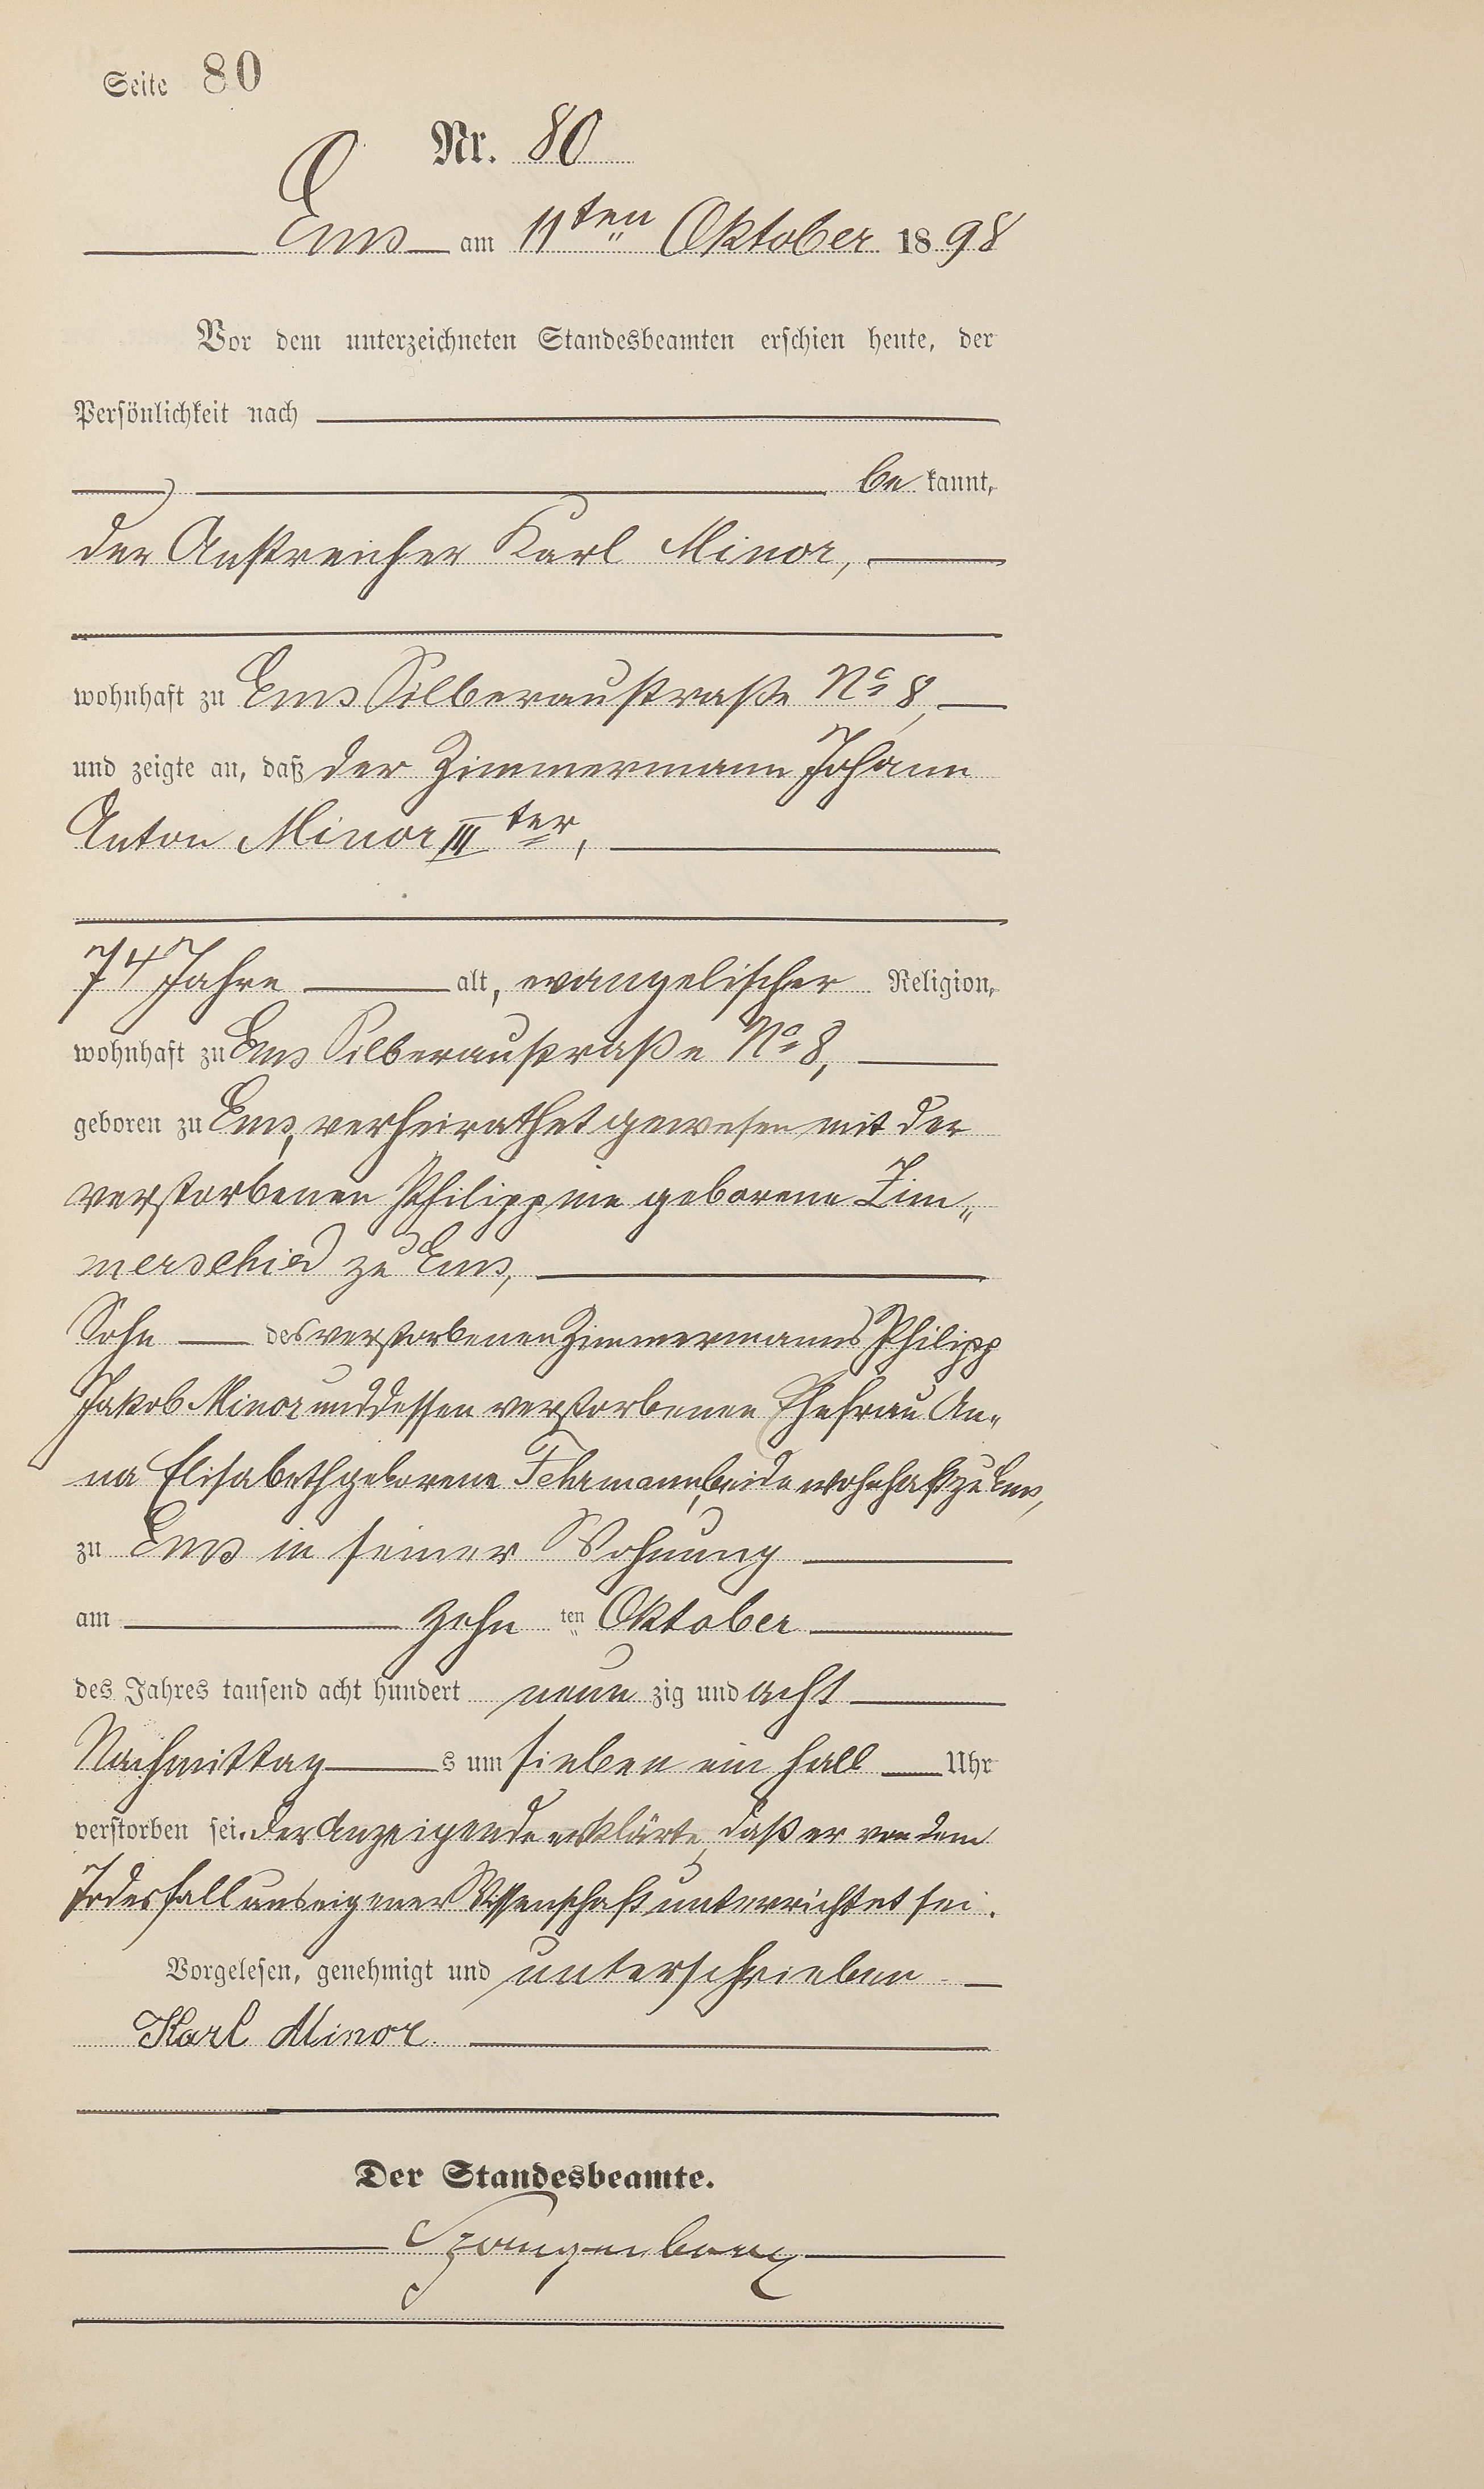 Seite 80
Nr. 80
C
Ems am 11ten Oktober 1898
Vor dem unterzeichneten Standesbeamten erschien heute, der
Persönlichkeit nach
be kannt,
der Anstreicher Karl Minor,
wohnhaft zu Ems Silberaustraße No 8,
und zeigte an, daß der Zimmermann Johann
Anton Minor IIIter,
74 Jahre alt, evangelischer Religion,
wohnhaft zu Ems Silberaustraße No 8,
geboren zu Ems, verheirathet gewesen mit der
verstorbenen Philippine geborene Zim„
merschied zu Ems,
Sohn des verstorbenen Zimmermanns Philipp
Jakob Minor und dessen verstorbenen Ehefrau An„
na Elisabeth geborene Fehrmann, beide wohnhaft zu Ems,
zu Ems in seiner Wohnung
am zehn ten Oktober
des Jahres tausend acht hundert neun zig und acht
Nachmittag s um sieben ein halb Uhr
verstorben sei. Der Anzeigende erklärte, daß er von dem
Todesfall aus eigener Wissenschaft unterrichtet sei.
Vorgelesen, genehmigt und unterschrieben
Karl Minor.
Der Standesbeamte.
Spangenberg